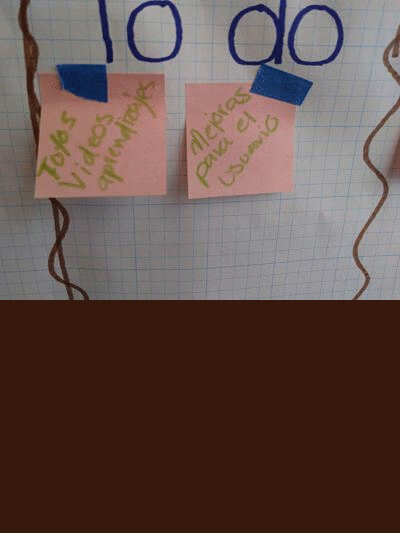 To do
Fotos
Videos
aprendizajes
Mejoras
para el
usuario